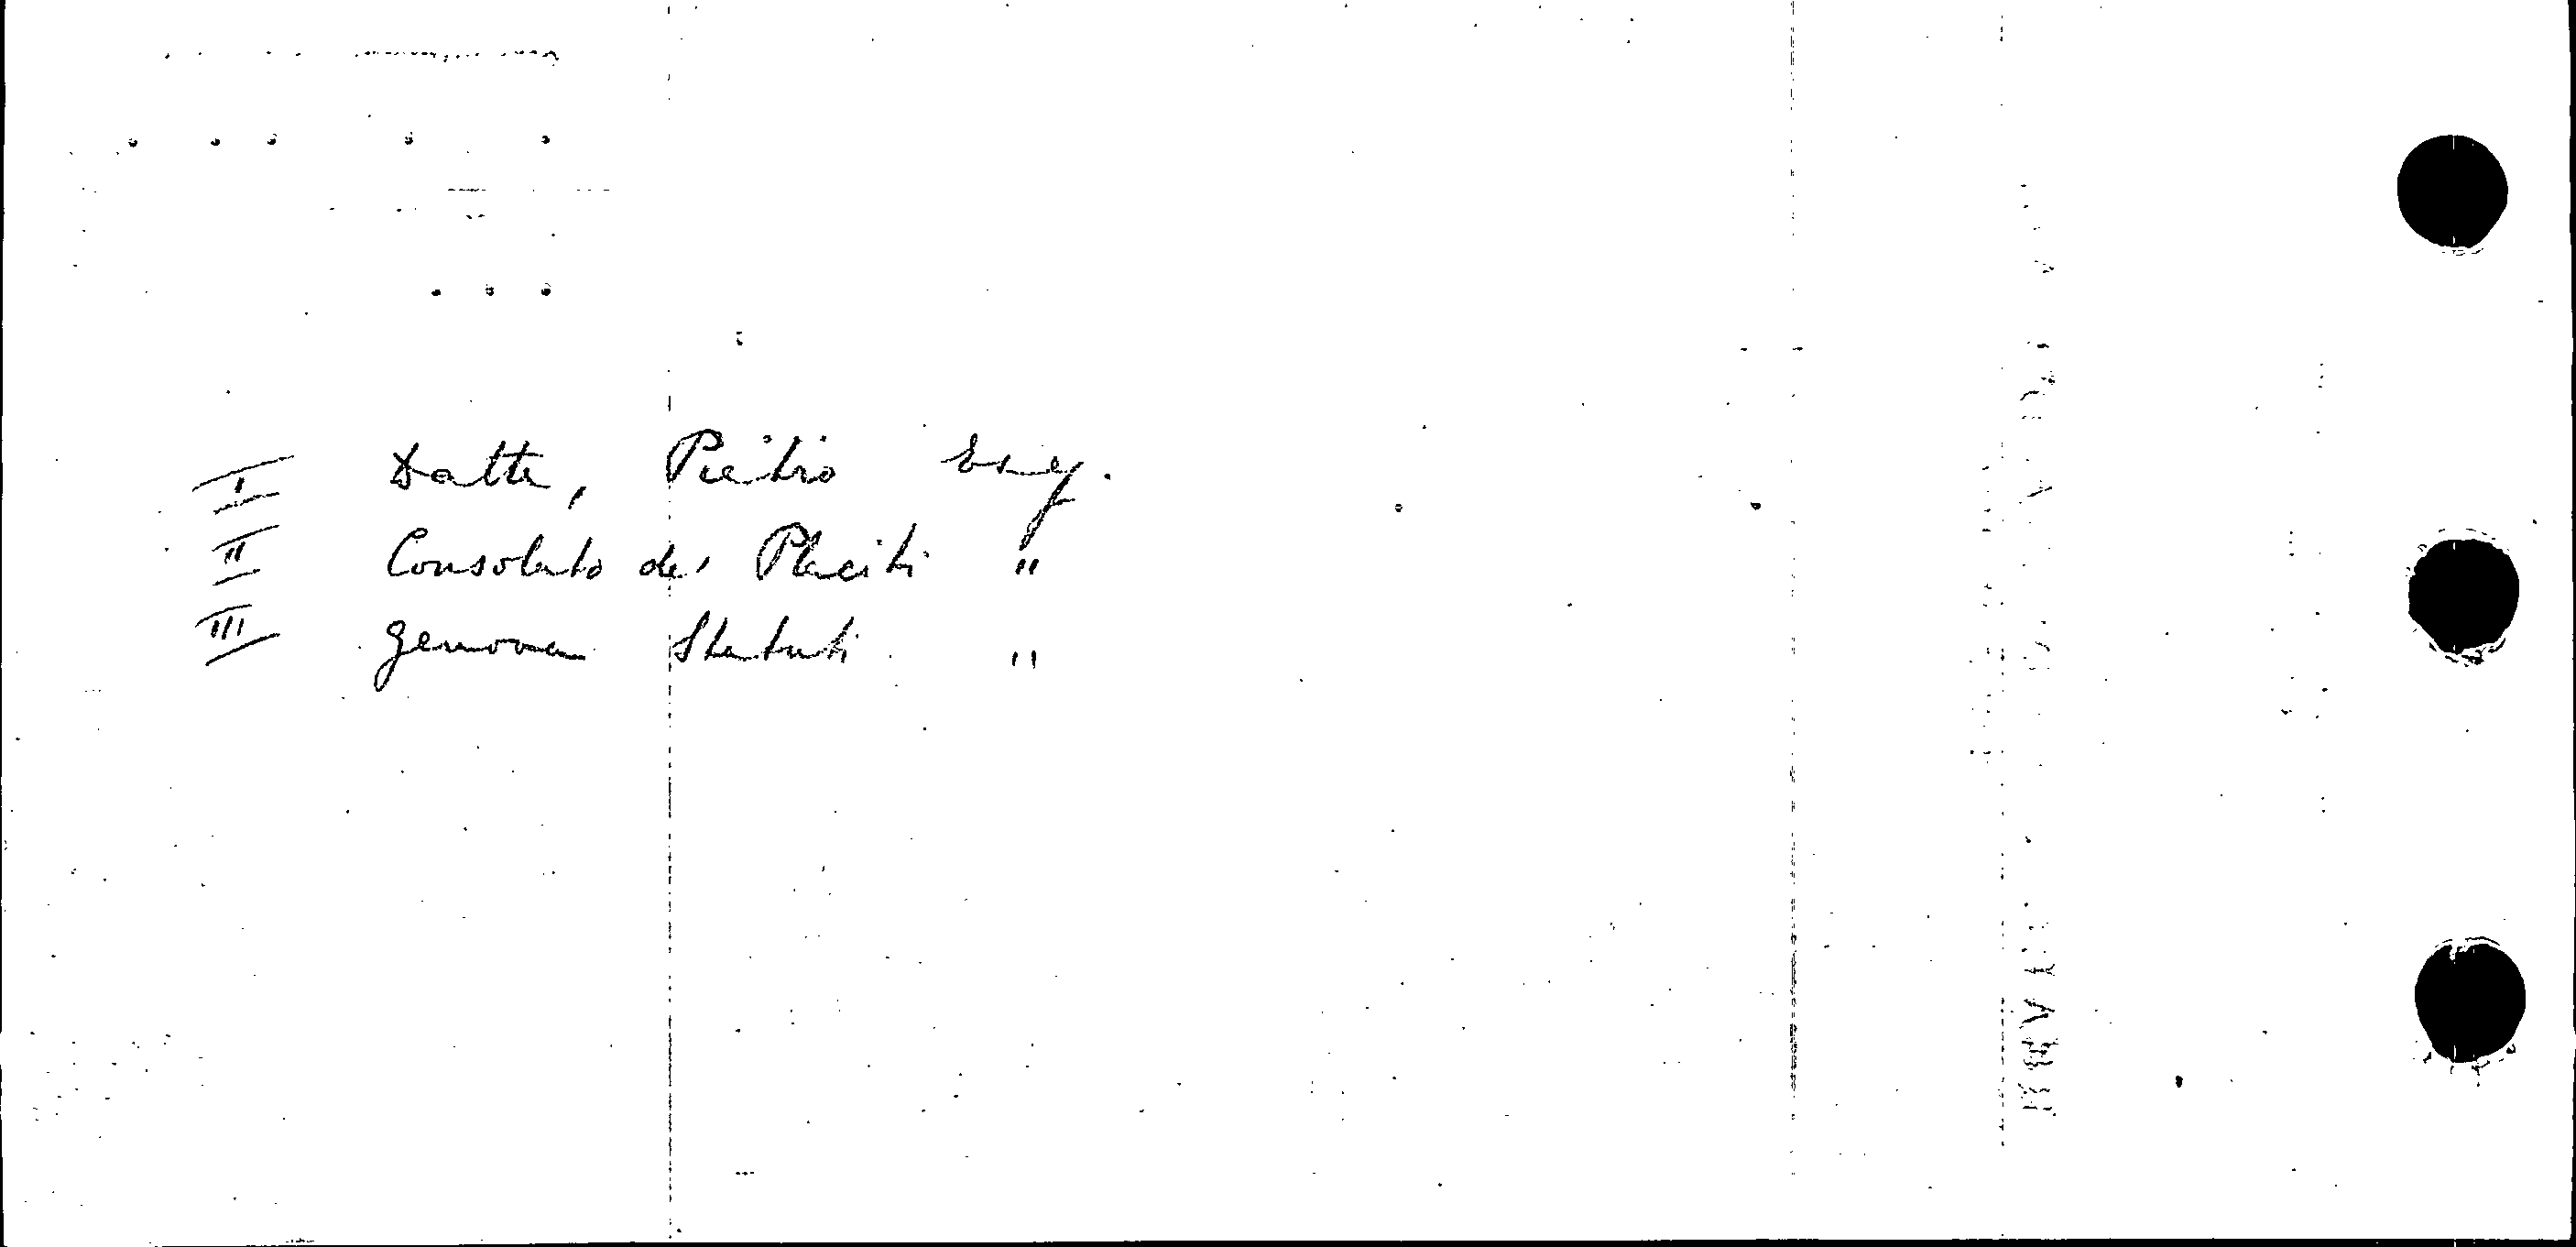 I Datta, Pietro Esq.
II Consolato dei Placiti "
III Genova Statuti "